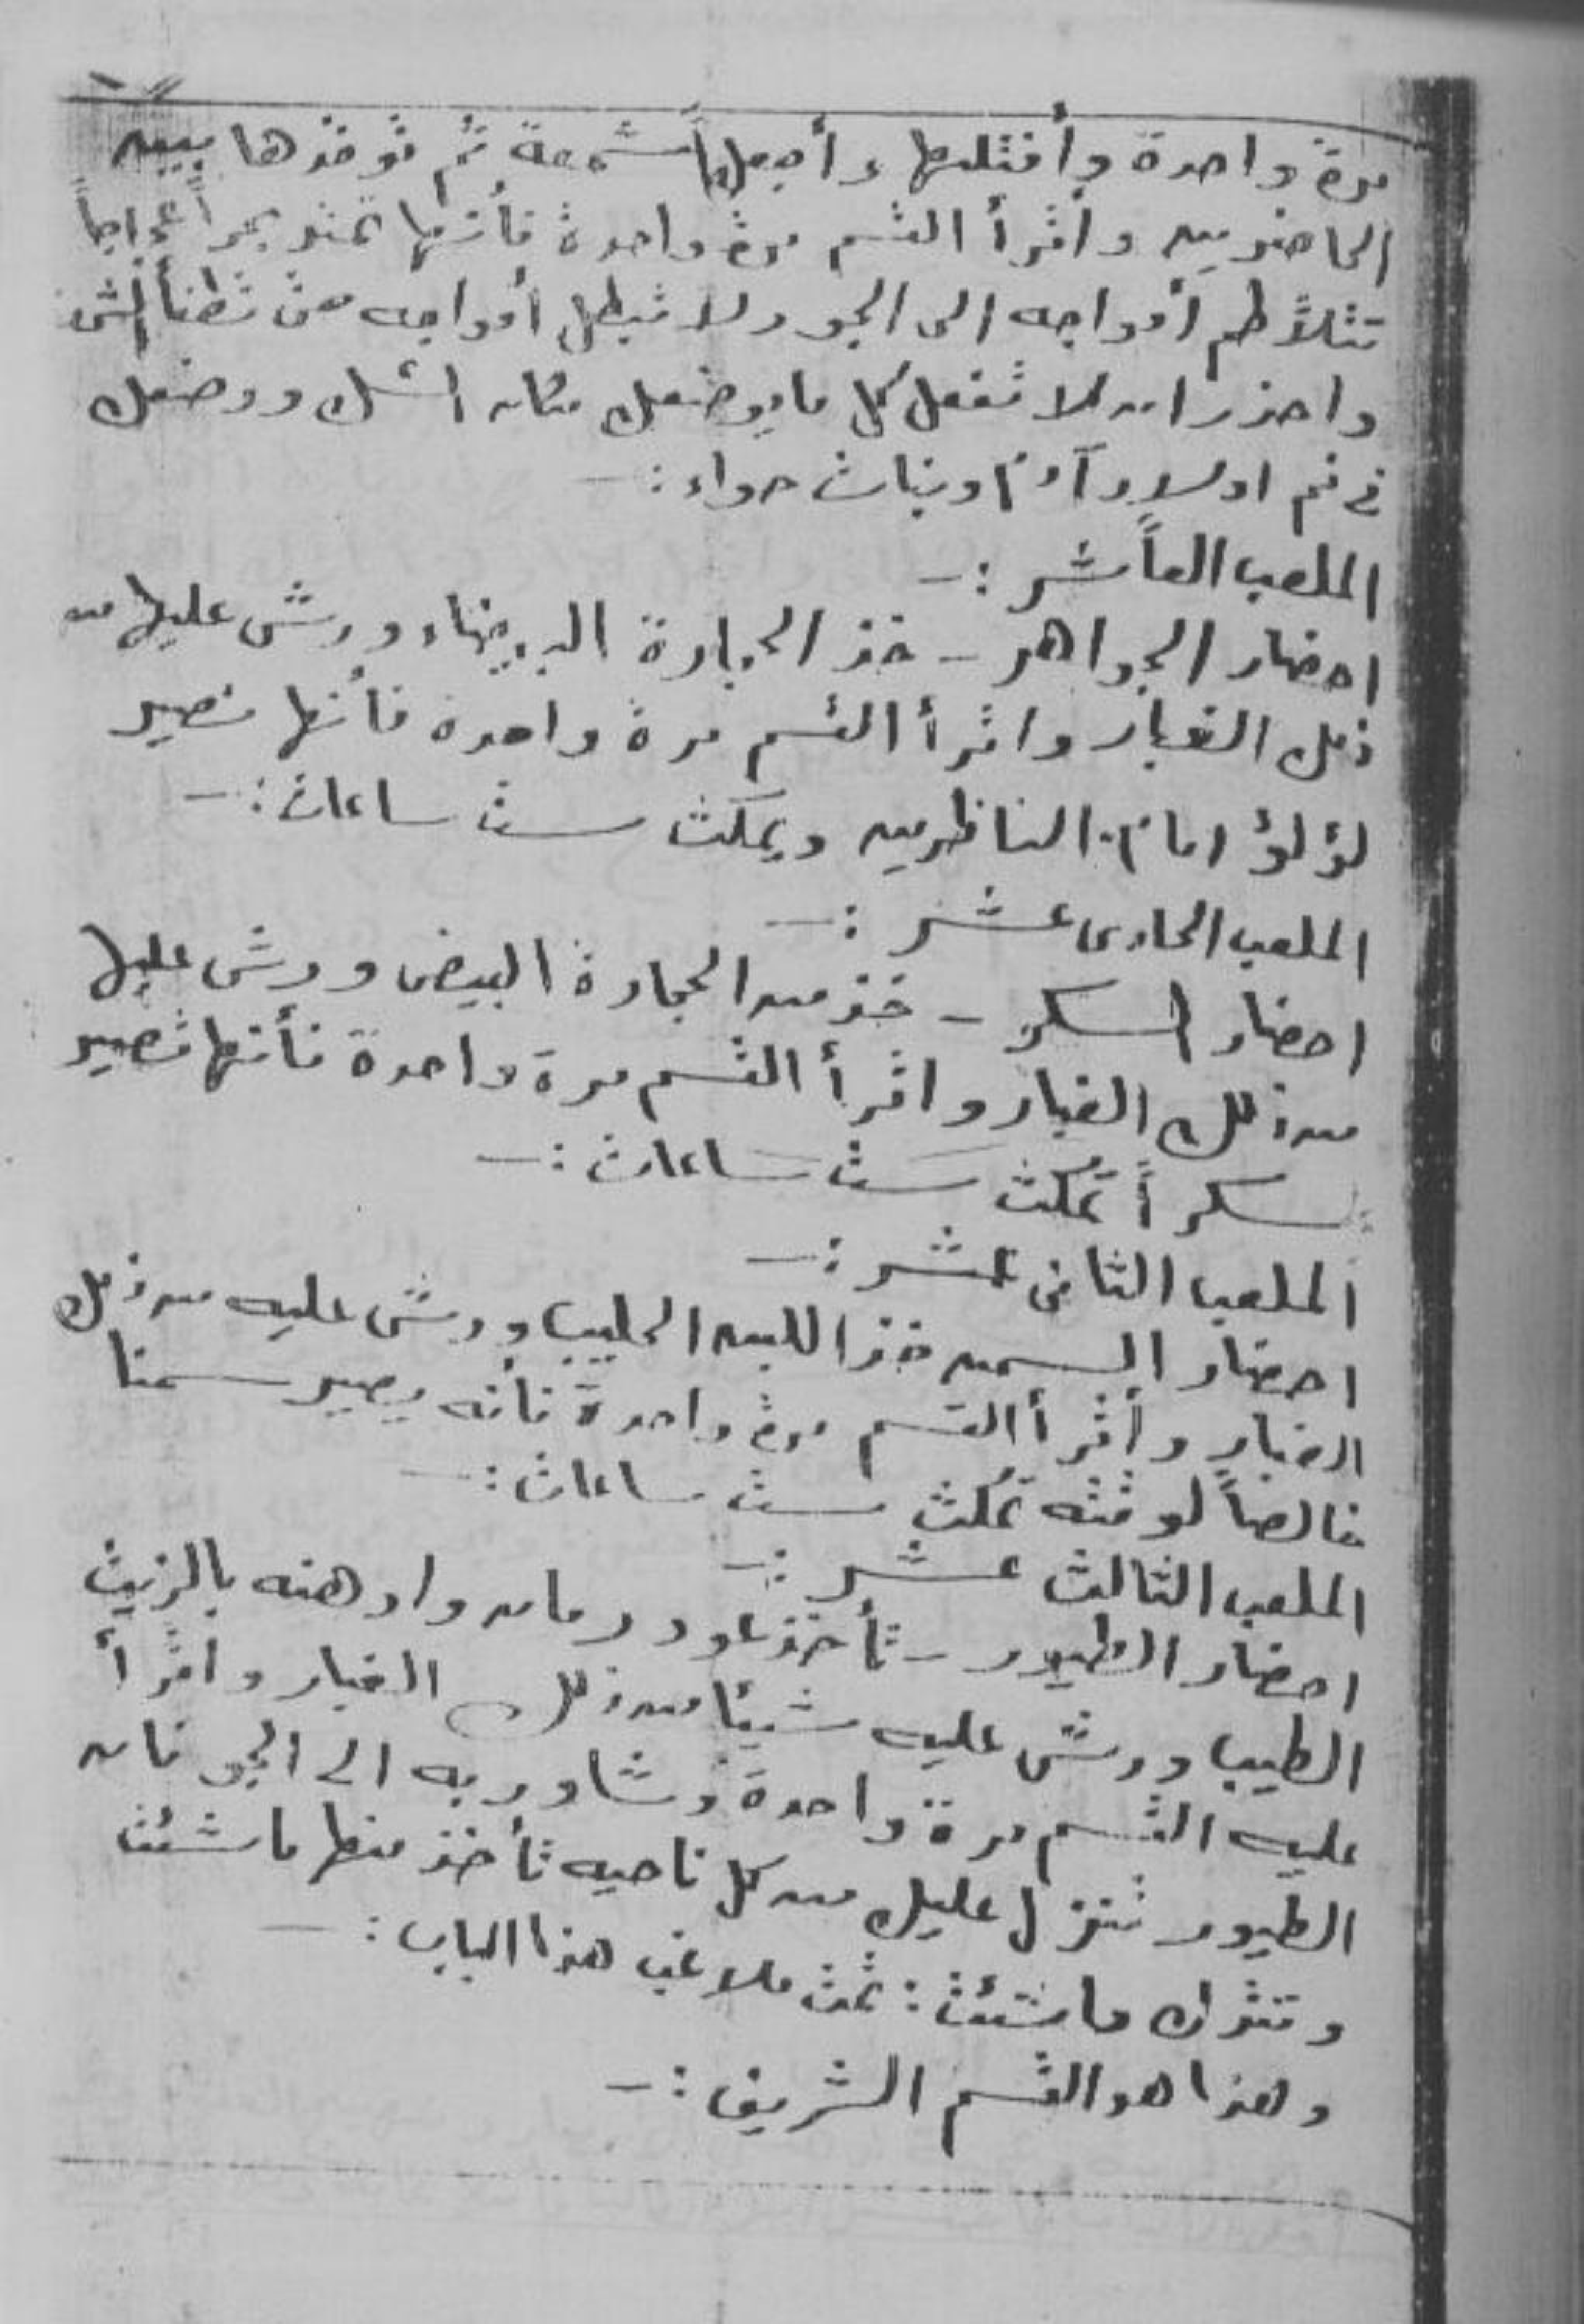 مرة واحدة وأفتلها وأجعلها شمعة ثم توقدها بين
الحاضرين واقرأ القسم مرة واحدة فأنها تمتد بحراً عجاجاً
تتلاطم أمواجه الى الجو ولا تبطل أمواجه حتى تطفأ
واحذر ان لا تفعل كل ما يوضعك مكان الشك ووضعك
في فم اولاد آدم وبنات حواء :-
الملعب العاشر :-
احضار الجواهر - خذ الحجارة البيضاء ورش عليها من
ذلك الغبار واقرأ القسم مرة واحدة فأنها تصير
لؤلؤ امام الناظرين ويمكث ست ساعات :-
الملعب الحادى عشر :-
احضار السكر - خذ من الحجارة البيض ورش عليها
من ذلك الغبار واقرأ القسم مرة واحدة فأنها تصير
سكراً تمكث ست ساعات :-
الملعب الثانى عشر :-
احضار السمن خذ اللبن الحليب ورش عليه من ذلك
الغبار وأقرأ القسم مرة واحدة فأنه يصير سمنا
خالصاً لوقته تمكث ست ساعات :-
الملعب الثالث عشر :-
احضار الطيور - تأخذ عود رمان وادهنه بالزيت
الطيب ورش عليه شيئا من ذلك الغبار واقرأ
عليه القسم مرة واحدة وشاور به الى الجو فان
الطيور تنزل عليك من كل ناحيه تأخذ منها ما شئت
وتترك ما شئت : تمت ملاعب هذا الباب :-
وهذا هو القسم الشريف :-